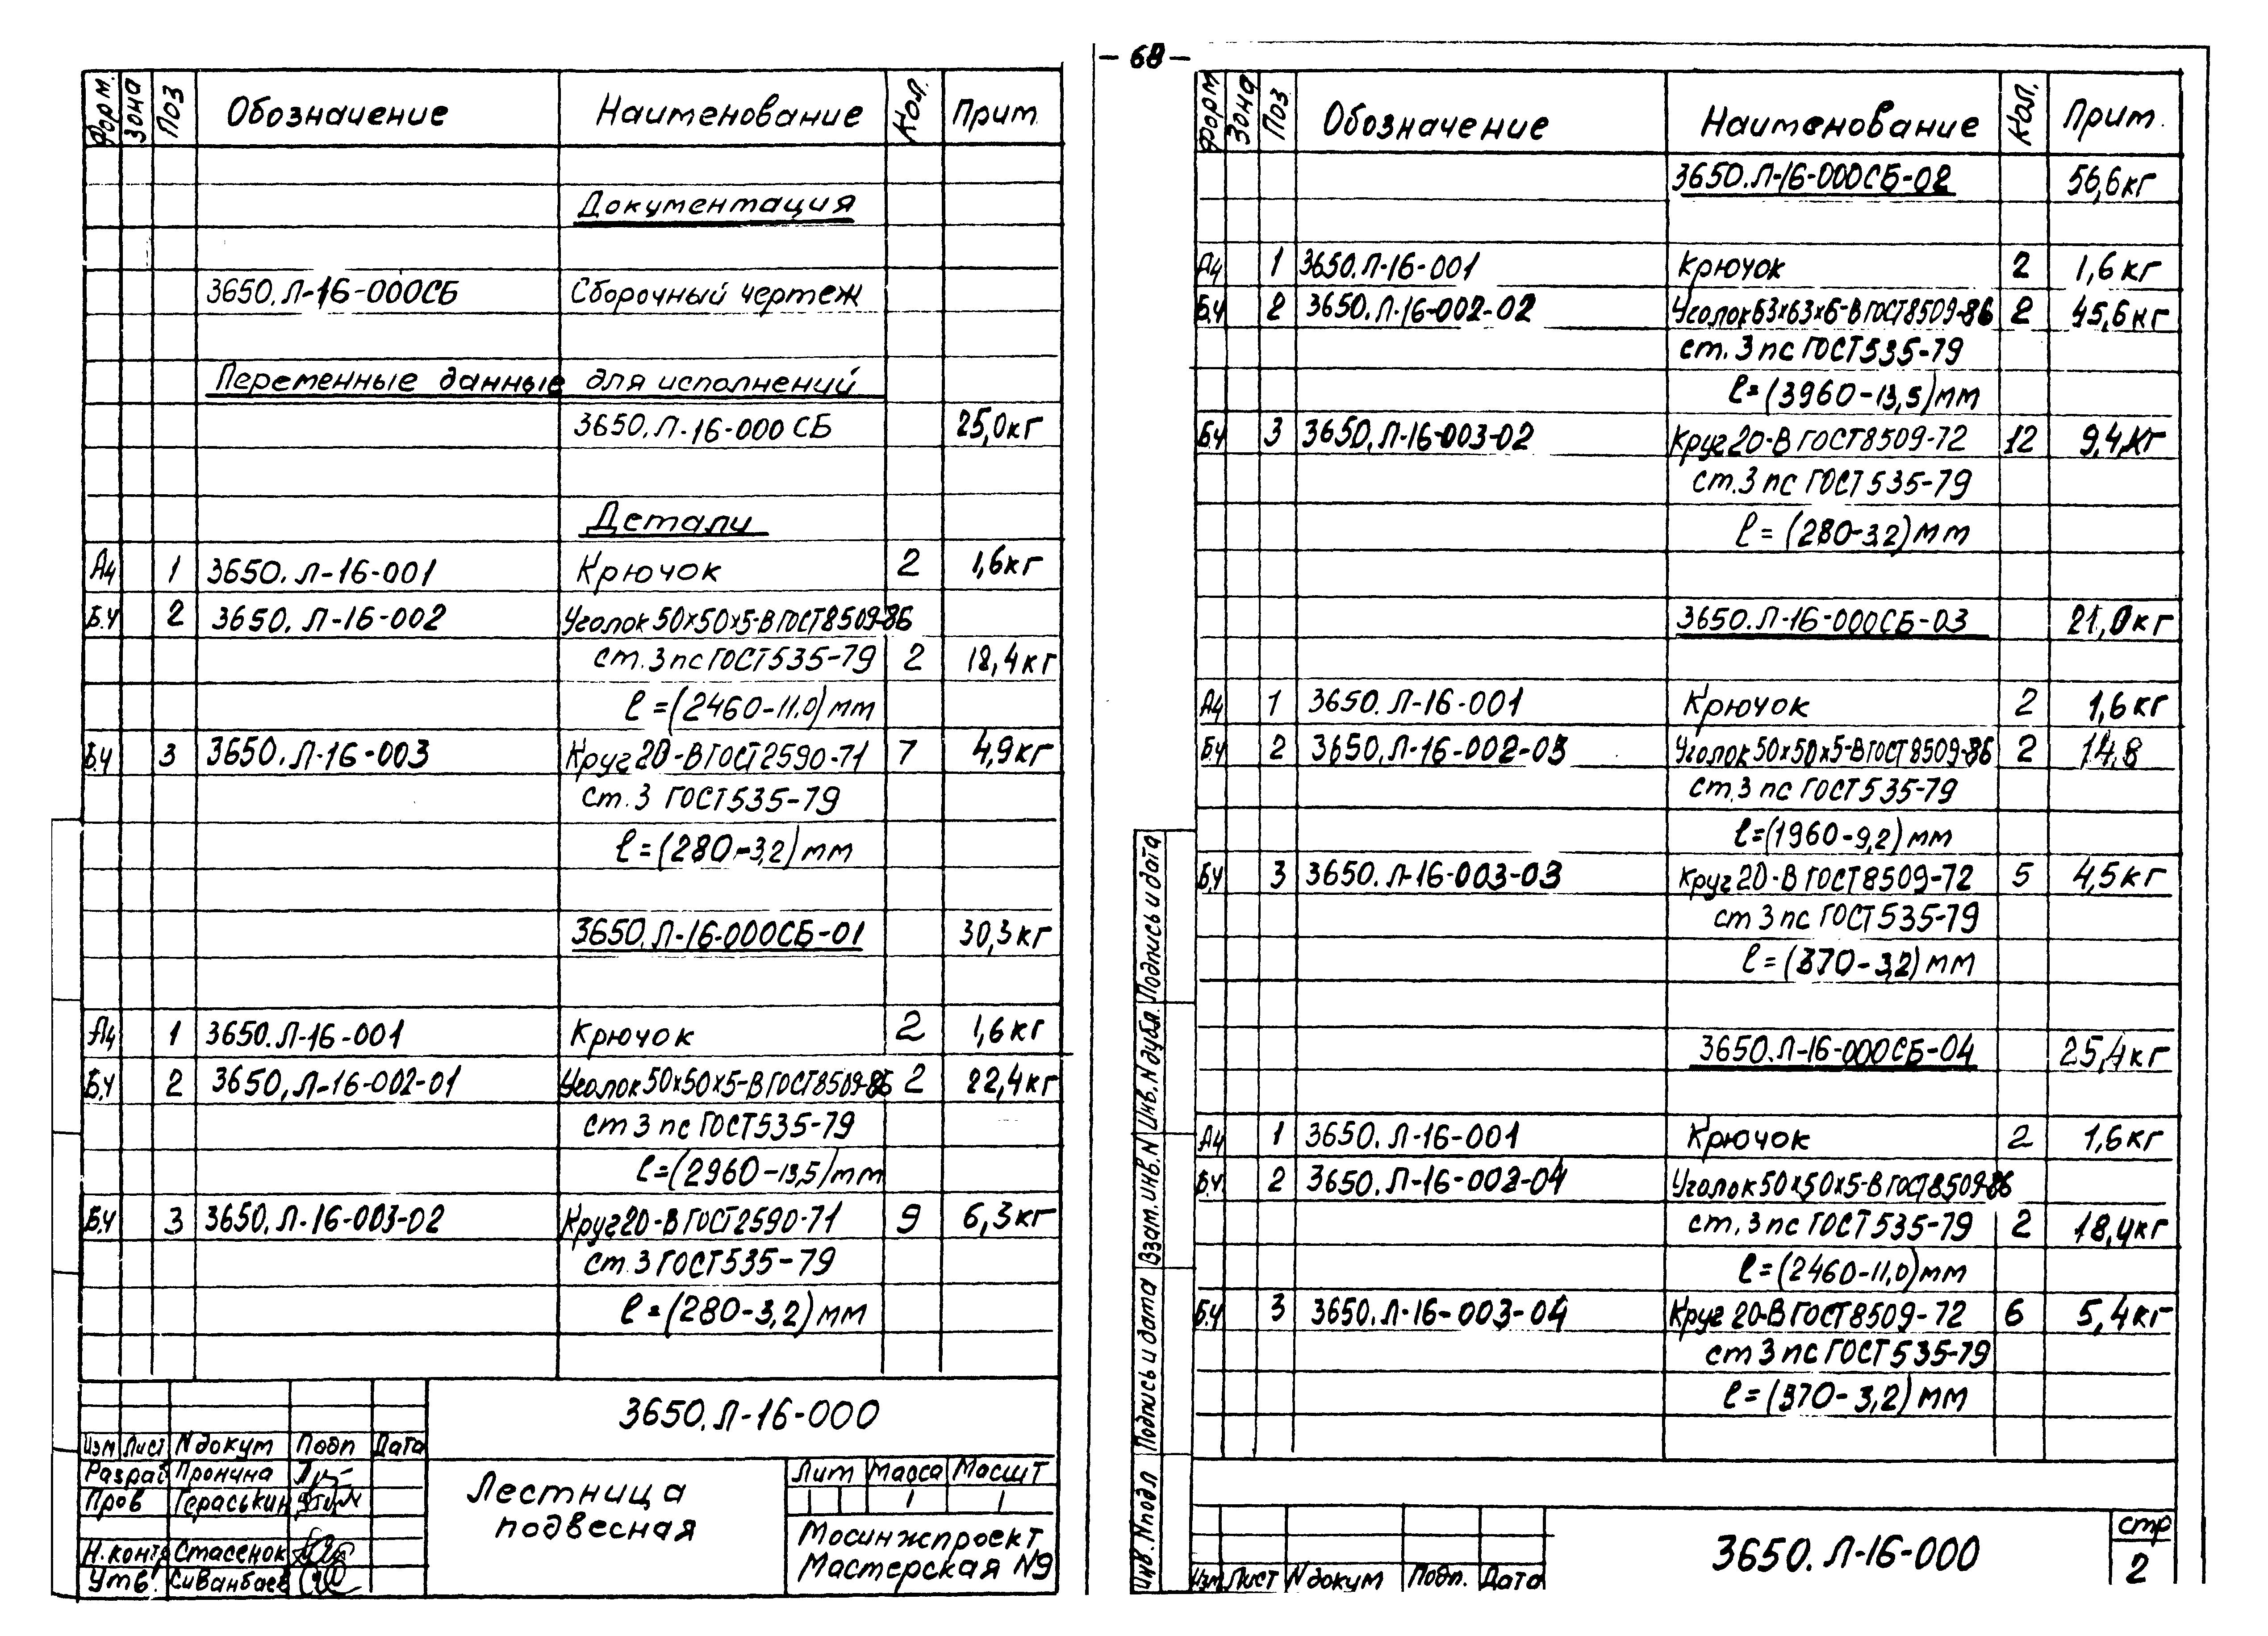 - 68 -
Форм. Зона Поз Обозначение Наименование Кол. Прим.
Документация
3650.Л-16-000СБ Сборочный чертеж
Переменные данные для исполнений
3650.Л-16-000 СБ 25,0кг
Детали
А4 1 3650.Л-16-001 Крючок 2 1,6кг
Б.Ч 2 3650.Л-16-002 Уголок 50х50х5-В ГОСТ 8509-86
ст.3пс ГОСТ535-79 2 18,4кг
ℓ=(2460-11,0)мм
Б.Ч 3 3650.Л-16-003 Круг 20-В ГОСТ 2590-71 7 4,9кг
ст.3 ГОСТ535-79
ℓ=(280-3,2)мм
3650.Л-16-000СБ-01 30,3кг
А4 1 3650.Л-16-001 Крючок 2 1,6кг
Б.Ч 2 3650.Л-16-002-01 Уголок 50х50х5-В ГОСТ8509-86 2 22,4кг
ст 3 пс ГОСТ535-79
ℓ=(2960-13,5)мм
Б.Ч 3 3650.Л-16-003-02 Круг20-В ГОСТ2590-71 9 6,3кг
ст.3 ГОСТ535-79
ℓ=(280-3,2)мм
3650.Л-16-000
Изм Лист N докум Подп Дата
Разраб Пронина
Пров Гераськин
Н.контр Стасенок
Утв. Сиванбаев
Лестница
подвесная
Лит Масса Масшт
Мосинжпроект
Мастерская N9
Форм Зона Поз Обозначение Наименование Кол. Прим.
3650.Л-16-000СБ-02 56,6кг
А4 1 3650.Л-16-001 Крючок 2 1,6кг
Б.Ч 2 3650.Л-16-002-02 Уголок 63х63х6-В ГОСТ8509-86 2 45,6кг
ст. 3 пс ГОСТ535-79
ℓ=(3960-13,5)мм
Б.Ч 3 3650.Л-16-003-02 Круг 20-В ГОСТ8509-72 12 9,4кг
ст.3 пс ГОСТ535-79
ℓ=(280-3,2)мм
3650.Л-16-000СБ-03 21,0кг
А4 1 3650.Л-16-001 Крючок 2 1,6кг
Б.Ч 2 3650.Л-16-002-03 Уголок 50х50х5-В ГОСТ8509-86 2 14,8
ст.3 пс ГОСТ535-79
ℓ=(1960-9,2)мм
Б.Ч 3 3650.Л-16-003-03 Круг 20-В ГОСТ8509-72 5 4,5кг
ст 3 пс ГОСТ535-79
ℓ=(370-3,2)мм
3650.Л-16-000СБ-04 25,4кг
А4 1 3650.Л-16-001 Крючок 2 1,6кг
Б.Ч 2 3650.Л-16-002-04 Уголок 50х50х5-В ГОСТ8509-86
ст.3пс ГОСТ535-79 2 18,4кг
ℓ=(2460-11,0)мм
Б.Ч 3 3650.Л-16-003-04 Круг 20-В ГОСТ8509-72 6 5,4кг
ст 3 пс ГОСТ535-79
ℓ=(370-3,2)мм
Инв. N подл Подпись и дата Взам. инв. N Инв. N дубл. Подпись и дата
Изм Лист N докум Подп. Дата
3650.Л-16-000
стр
2